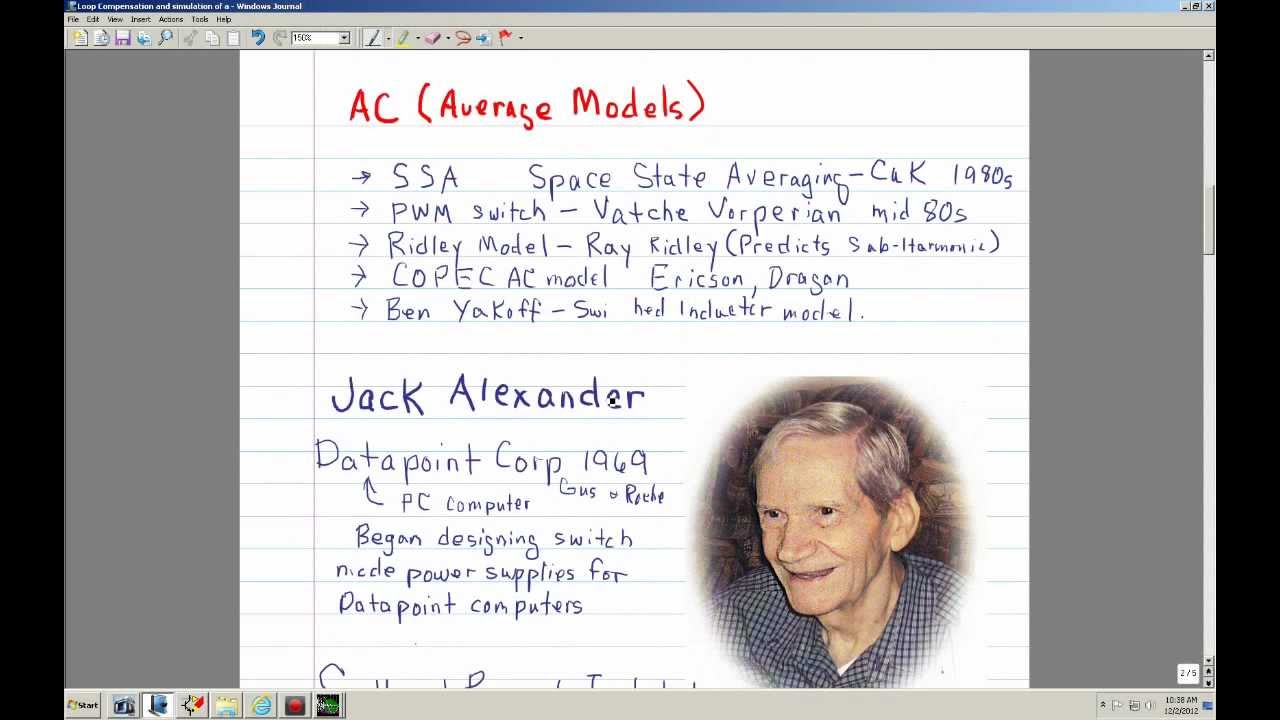 Loop Compensation and simulation of a - Windows Journal
File Edit View Insert Actions Tools Help
150%
AC (Average Models)
→ SSA Space State Averaging - Cuk 1980s
→ PWM switch - Vatche Vorperian mid 80s
→ Ridley Model - Ray Ridley (Predicts Sub-Harmonic)
→ COPEC AC model Ericson, Dragan
→ Ben Yakoff - Swi hed Inductor model.
Jack Alexander
Datapoint Corp 1969
Gus Roche
PC computer
Began designing switch
mode power supplies for
Datapoint computers
2/5
Start
10:38 AM
12/2/2012